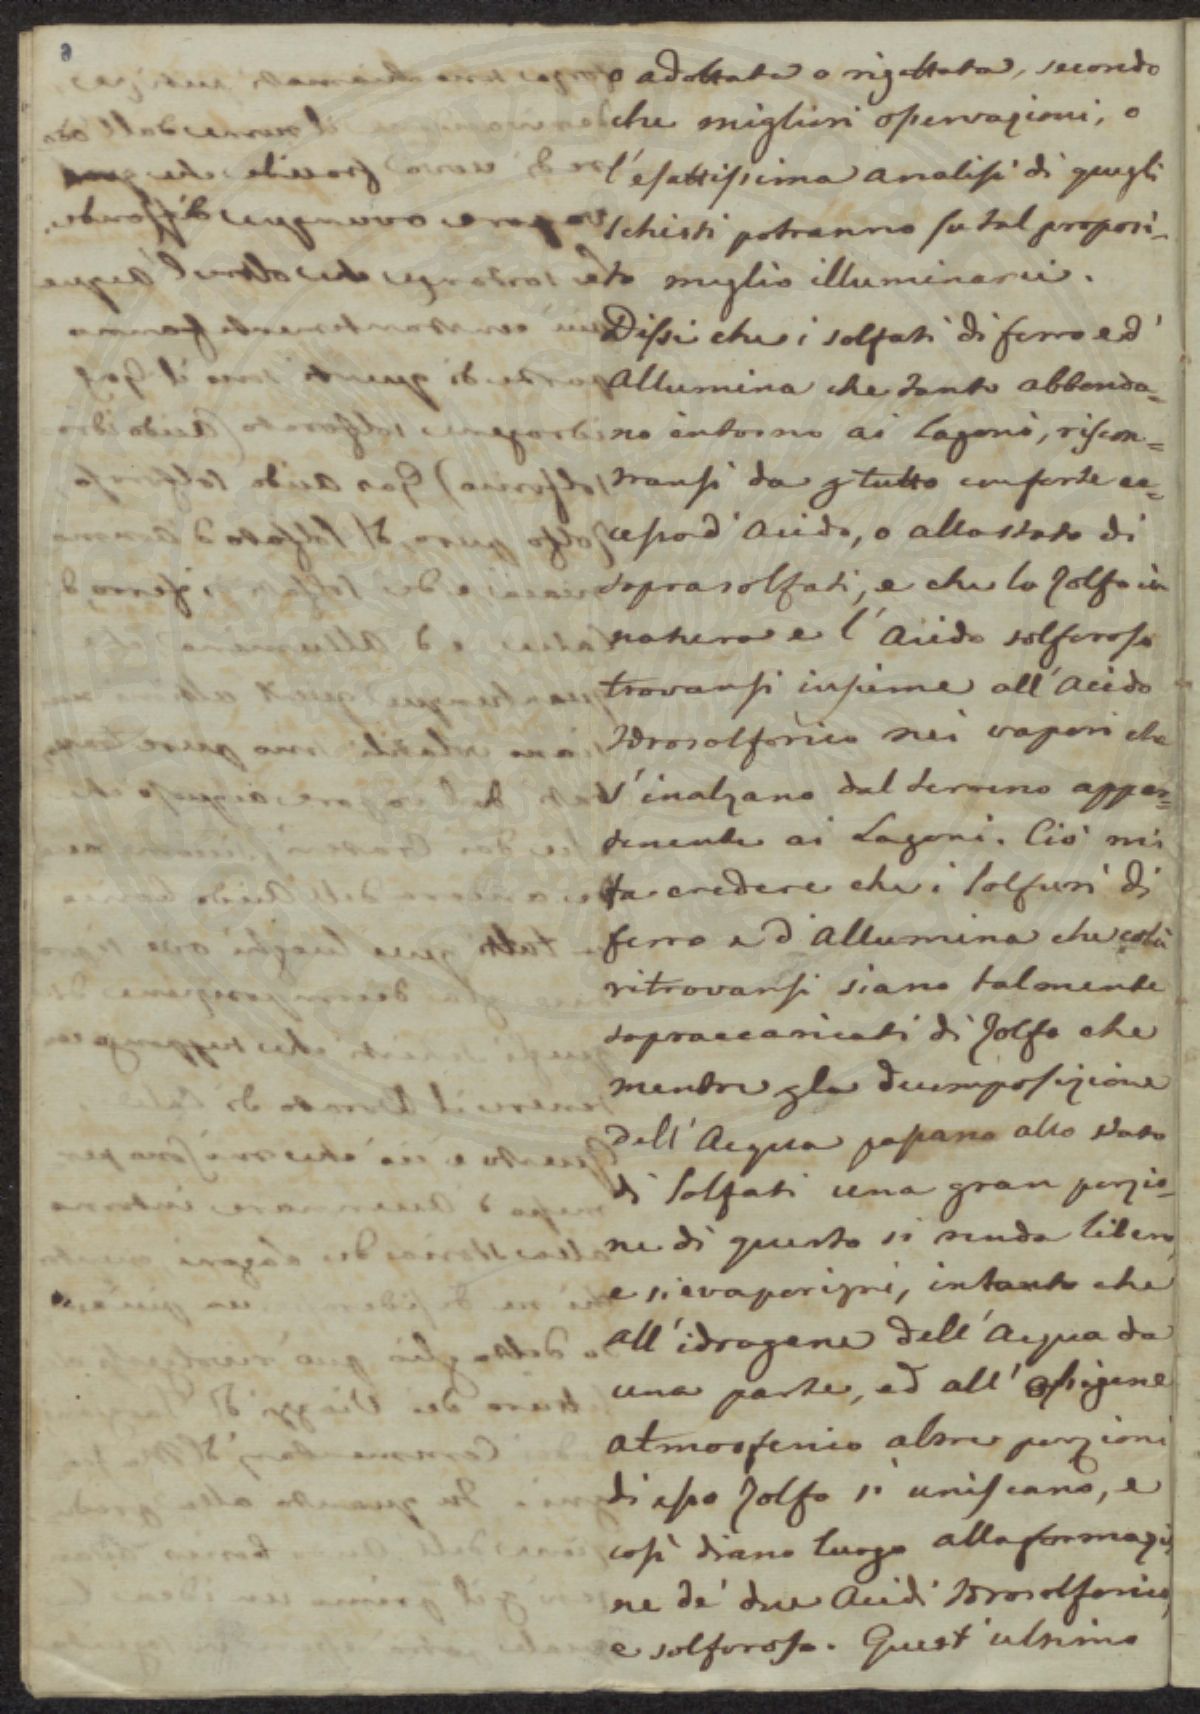 o adottata o rigettata, secondo
che migliori osservazioni, o
l'esattissima analisi di quegli
schisti potranno su tal proposi-
to meglio illuminarci.
Dissi che i solfati di ferro e d'
Allumina che tanto abbonda-
no intorno ai Lagoni, riscon-
transi da p tutto con forte ec-
cesso d'Acido, o allo stato di
soprasolfati, e che lo Zolfo in
natura e l'Acido solforoso
trovansi insieme all'Acido
Idrosolforico nei vapori che
s'inalzano dal terreno appar-
tenente ai Lagoni. Ciò mi
fa credere che i Solfuri di
ferro e d'Allumina che colà
ritrovansi siano talmente
sopraccaricati di Zolfo che
mentre p la decomposizione
dell'Acqua passano allo stato
di Solfati una gran porzio-
ne di questo si renda libera,
e si evaporizzi, intanto che
all'idrogene dell'Acqua da
una parte, ed all'ossigene
atmosferico altre porzioni
di esso Zolfo si uniscano, e
così diano luogo alla formazio
ne de' due Acidi Idrosolforico,
e solforoso. Quest'ultimo